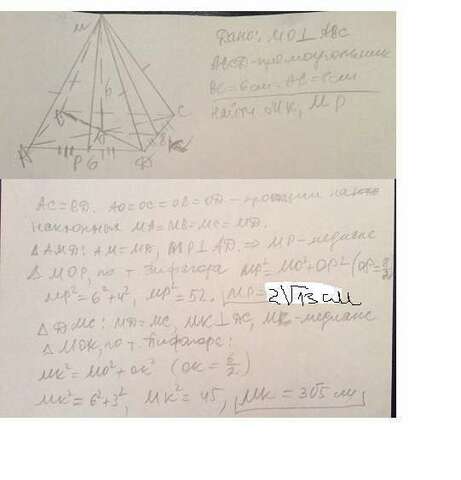 M
Дано: MO⊥ABC
ABCD-прямоугольник
BC=6см, AB=8см
Найти MK, MP
6
B
C
O
8
K
A
P
6
D
AC=BD. AO=OC=OB=OD - проекции
наклонных MA=MB=MC=MD.
△AMD: AM=MD, MP⊥AD. ⇒ MP-медиана
△MOP, по т. Пифагора MP²=MO²+OP² (OP=8/2)
MP²=6²+4², MP²=52. MP=2√13 см
△DMC: MD=MC, MK⊥DC, MK-медиана
△MOK, по т. Пифагора:
MK²=MO²+OK² (OK=6/2)
MK²=6²+3², MK²=45, MK=3√5 см